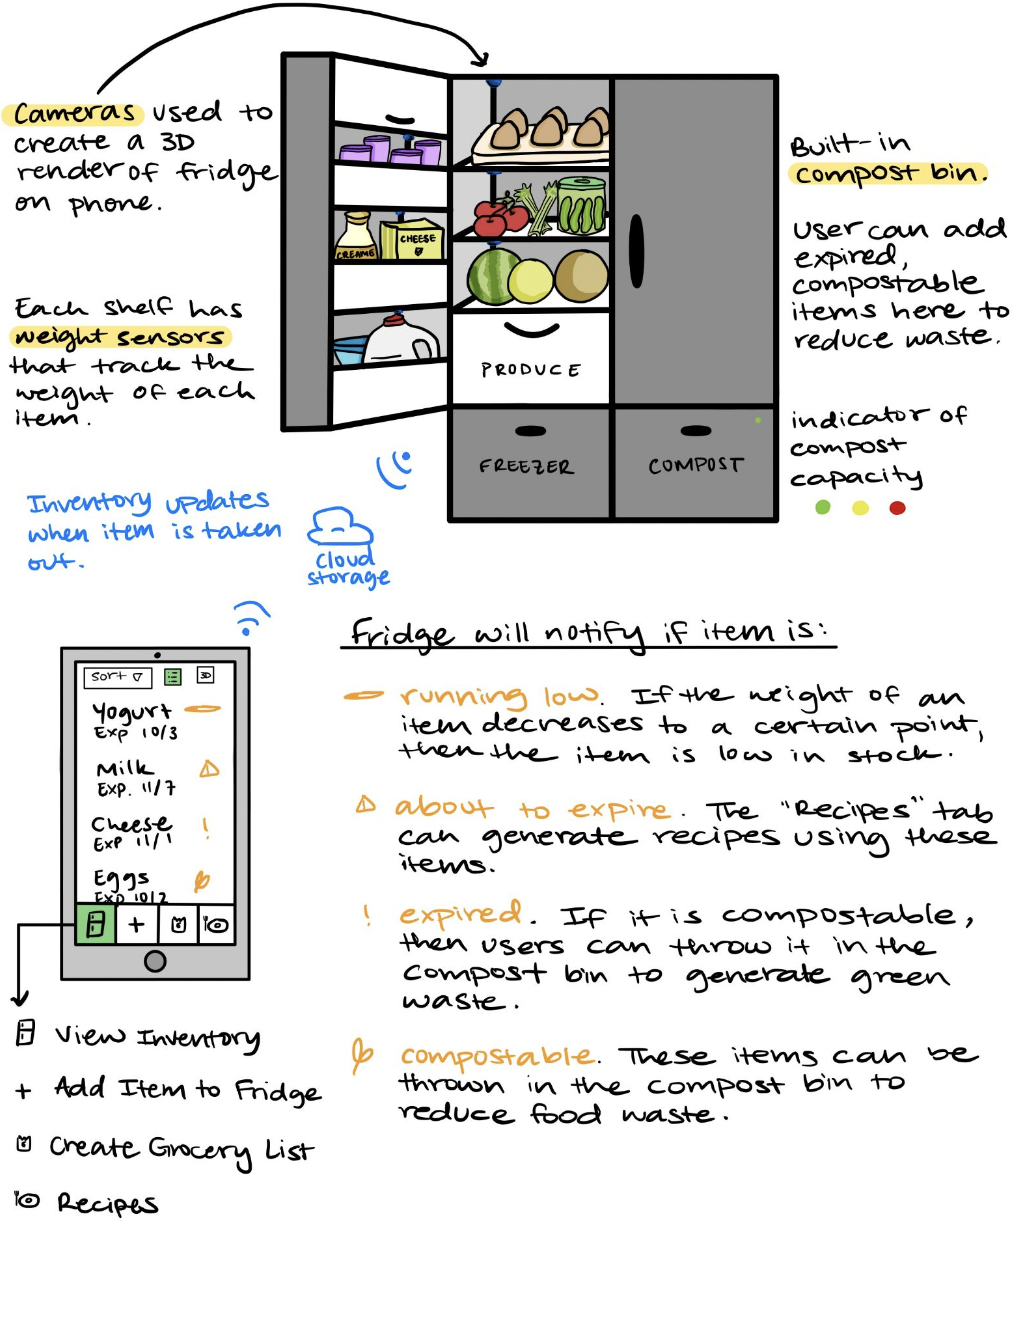 Cameras used to
create a 3D
render of fridge
on phone.
Each shelf has
weight sensors
that track the
weight of each
item.
CREAME
CHEESE
PRODUCE
FREEZER
COMPOST
Built-in
compost bin.
User can add
expired,
compostable
items here to
reduce waste.
indicator of
compost
capacity
Inventory updates
when item is taken
out.
Cloud
storage
Sort
3D
Yogurt
Exp 10/3
Milk
Exp. 11/7
Cheese
Exp 11/1
Eggs
Exp 10/2
+
View Inventory
+ Add Item to Fridge
Create Grocery List
Recipes
Fridge will notify if item is:
running low. If the weight of an
item decreases to a certain point,
then the item is low in stock.
about to expire. The "Recipes" tab
can generate recipes using these
items.
! expired. If it is compostable,
then users can throw it in the
compost bin to generate green
waste.
compostable. These items can be
thrown in the compost bin to
reduce food waste.